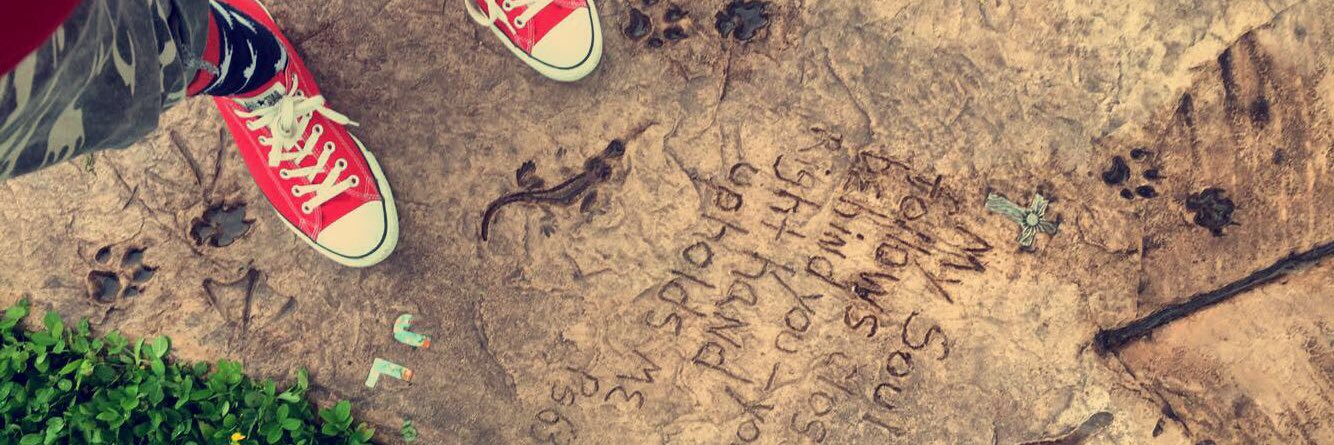 My Soul
Follows
BEhind You Yo
RIGHt HAND
UPHOldS ME
PS63